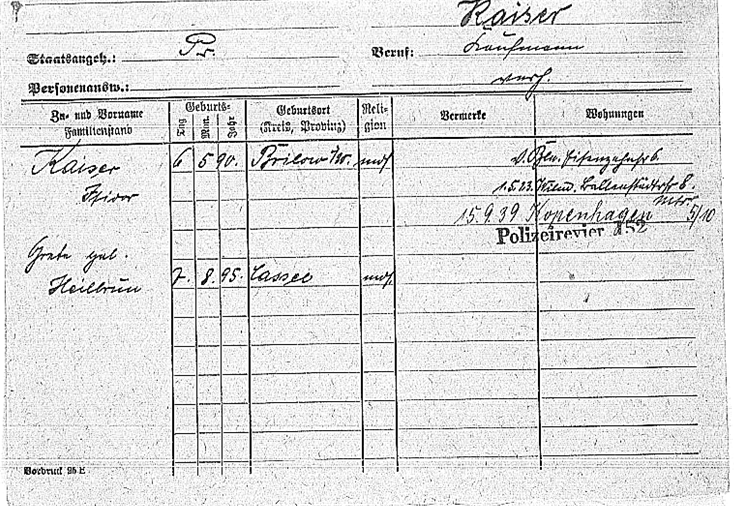 Kaiser
Staatsangeh.: Pr. Beruf: Kaufmann
Personenausw.: verh.
Zu- und Vorname Familienstand Geburts- Tag Mon. Jahr Geburtsort (Kreis, Provinz) Reli-gion Vermerke Wohnungen
Kaiser 6 5 90. mos. 6.
Isidor 1.5.23. 8.
15.9.39 Kopenhagen 5/10
Polizeirevier 152
Grete geb.
Heilbrun 7. 8. 95. Cassel mos.
Vordruck 95 E